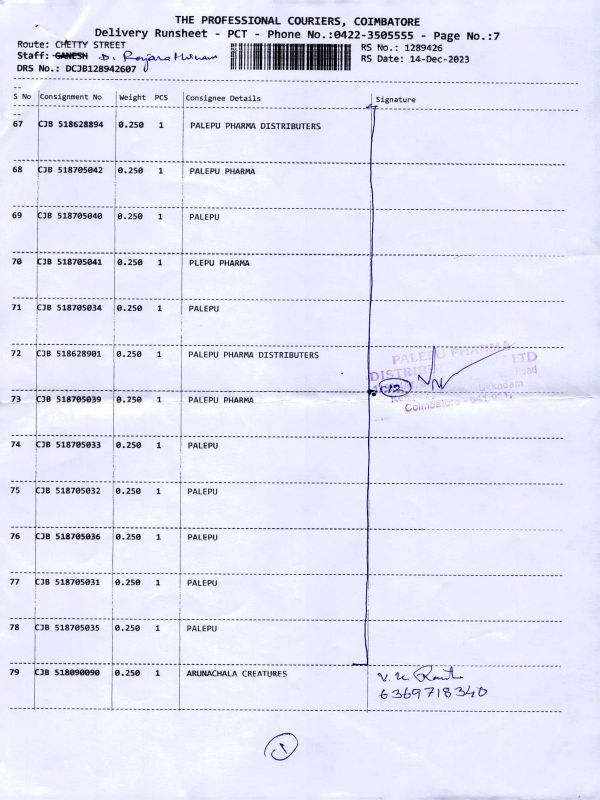 THE PROFESSIONAL COURIERS, COIMBATORE
Delivery Runsheet - PCT - Phone No.:0422-3505555 - Page No.:7
Route: CHETTY STREET
RS No.: 1289426
Staff: GANESH D.
RS Date: 14-Dec-2023
DRS No.: DCJB128942607
S No Consignment No Weight PCS Consignee Details Signature
67 CJB 518628894 0.250 1 PALEPU PHARMA DISTRIBUTERS
68 CJB 518705042 0.250 1 PALEPU PHARMA
69 CJB 518705040 0.250 1 PALEPU
70 CJB 518705041 0.250 1 PLEPU PHARMA
71 CJB 518705034 0.250 1 PALEPU
72 CJB 518628901 0.250 1 PALEPU PHARMA DISTRIBUTERS
PALEPU PHARMA
LTD
Road
12
Ukkadam
Coimbatore - 641 001
73 CJB 518705039 0.250 1 PALEPU PHARMA
74 CJB 518705033 0.250 1 PALEPU
75 CJB 518705032 0.250 1 PALEPU
76 CJB 518705036 0.250 1 PALEPU
77 CJB 518705031 0.250 1 PALEPU
78 CJB 518705035 0.250 1 PALEPU
79 CJB 518090090 0.250 1 ARUNACHALA CREATURES
6369718340
1